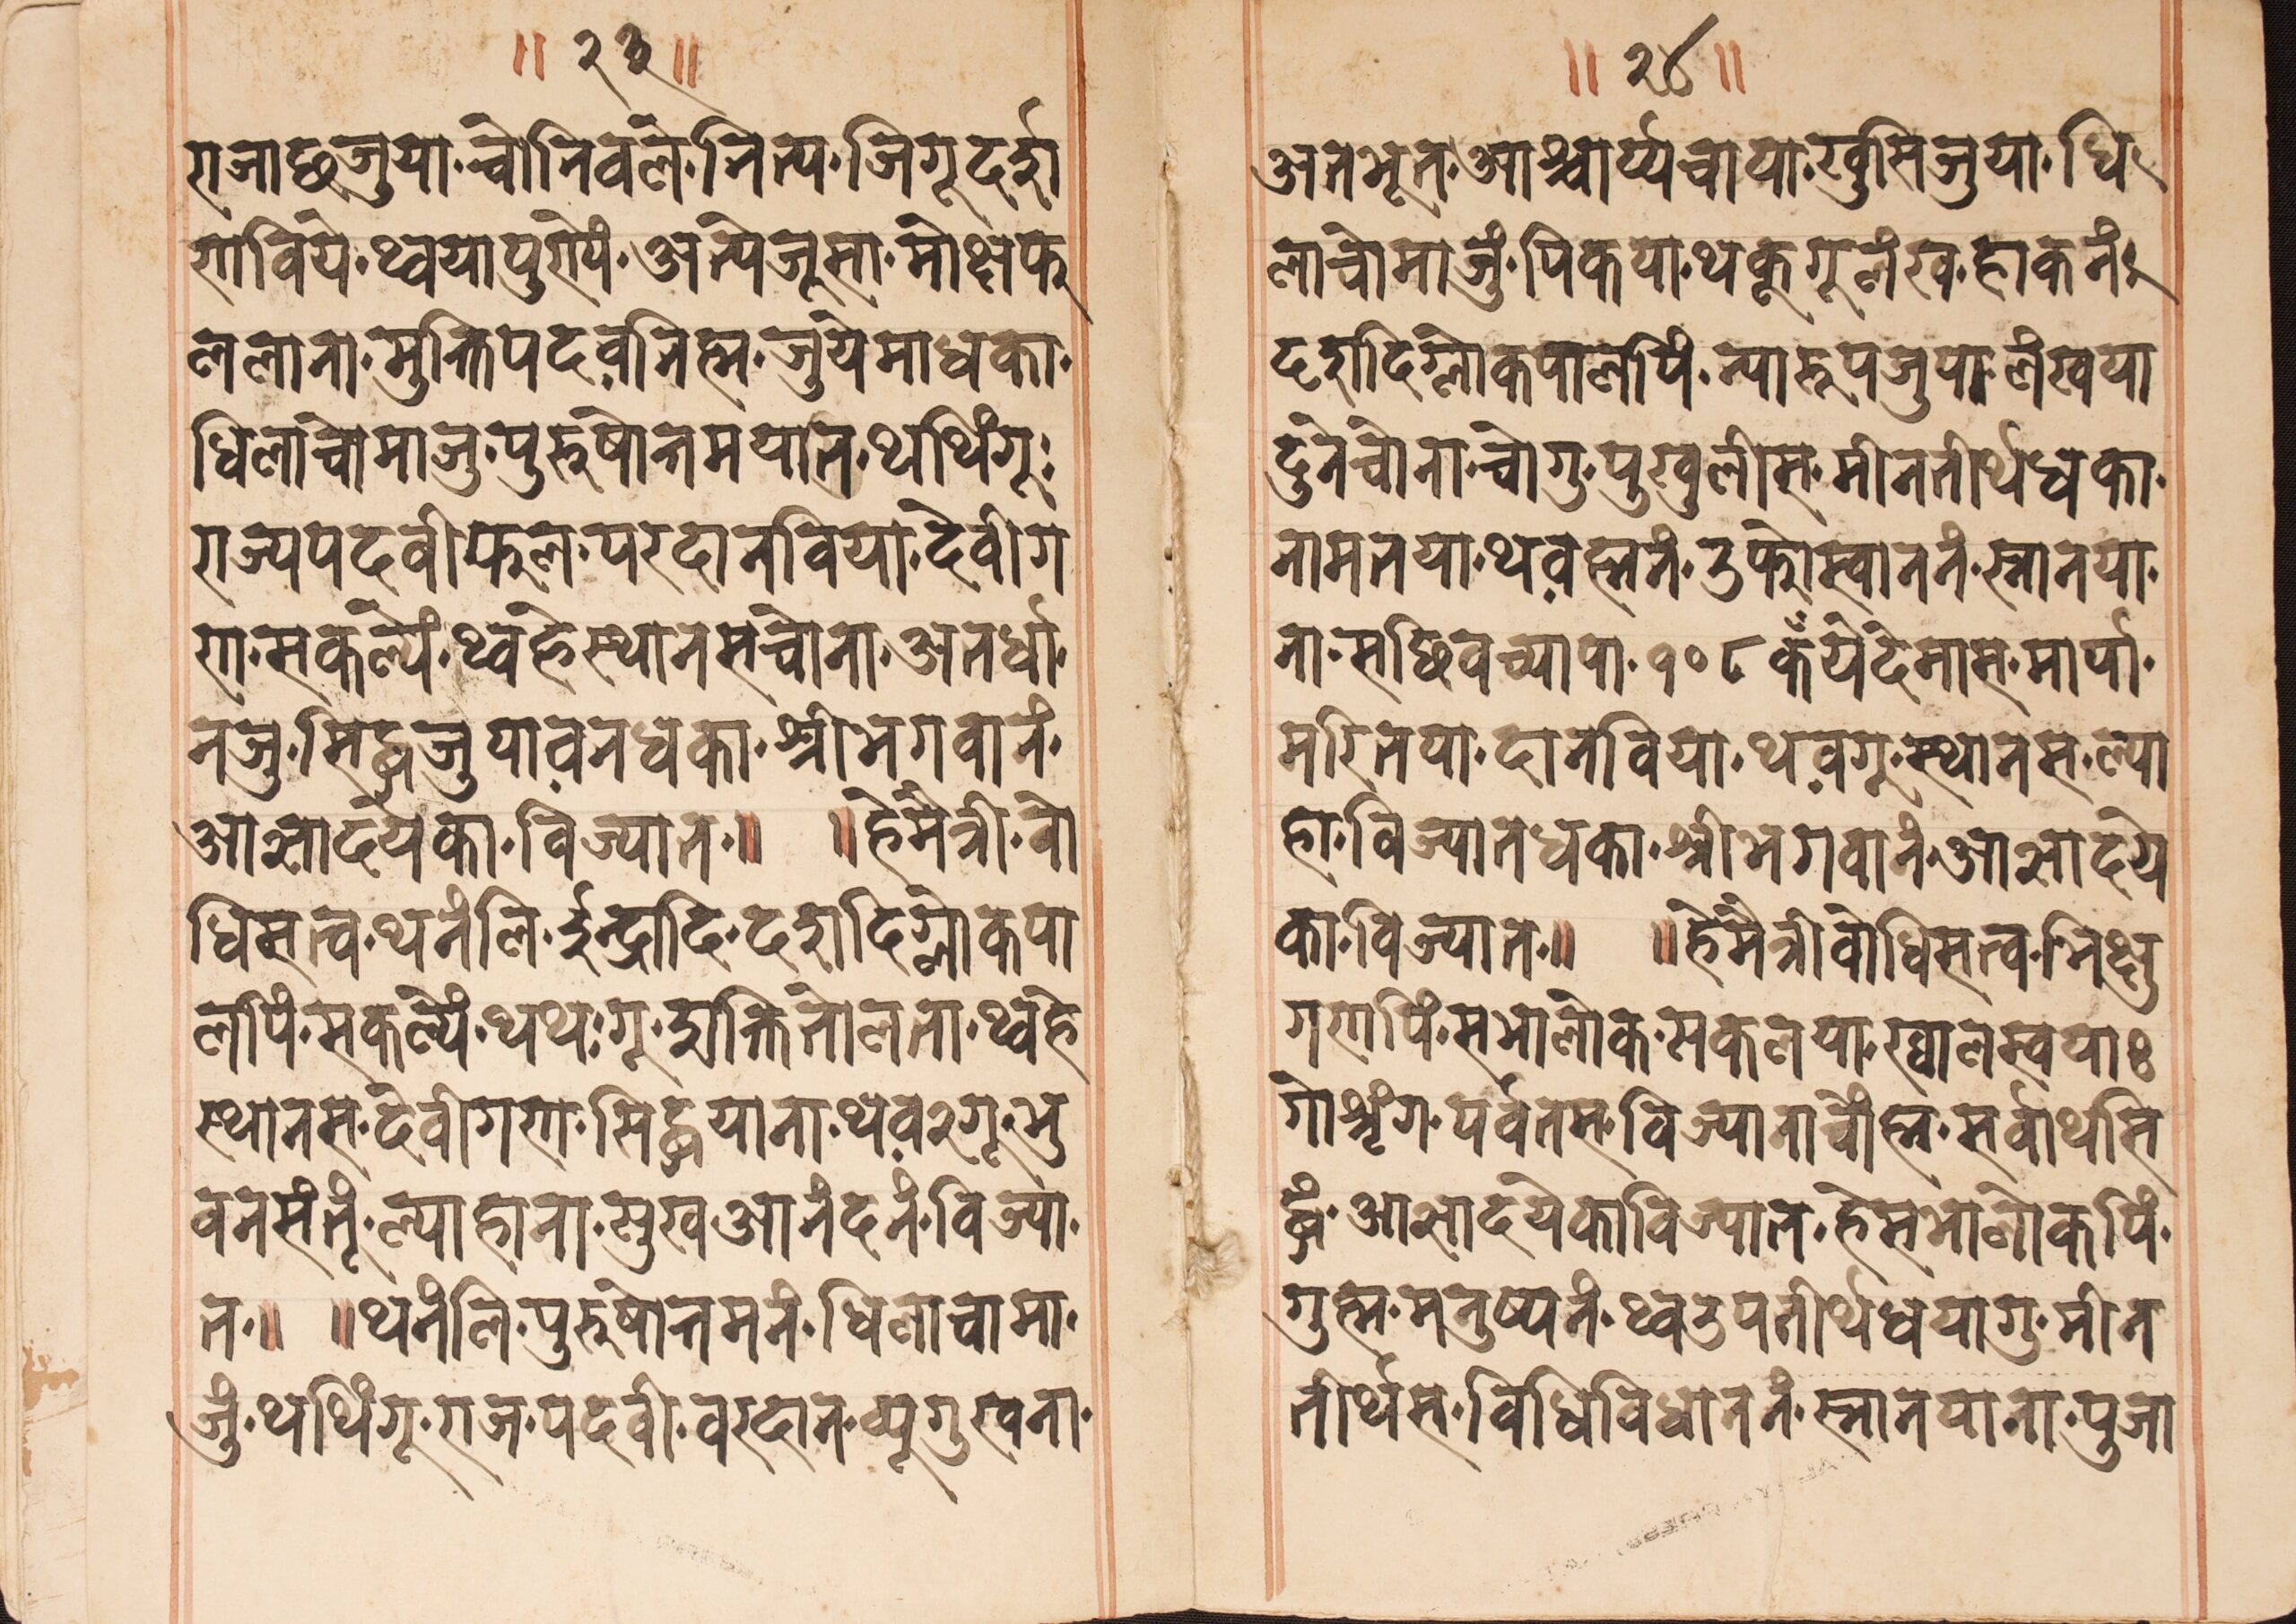 ॥ २३ ॥
राजाछजुया·चोनिवले·नित्य·जिगूदर्श
णविये·थ्वयापुण्येयं·अन्येजूसा·मोक्षफ
ललाना·मुक्तिपदव़निह्म·जुयेमाधका·
धिलाचोमाजु·पुरुषोत्तमयात·थथिंगू·
राज्यपदवीफल·परदानविया·देवीग
ण·सकल्यें·थ्वहेस्थानसचोना·अतर्धा·
नजु·सिद्धजुयाव़नधका·श्रीभगवानं·
आज्ञादयेका·विज्यात·॥ ॥हेमैत्री·वो
धिसत्व·थनंलि·ईन्द्रादि·दशदिग्लोकपा
लपिं·सकल्यें·थथ·गू·शक्तितोलता·थ्वहे
स्थानस·देवीगण·सिद्धयाना·थव़२गू·भु
वनसंतू·ल्याहाना·सुखआनंदनं·विज्या·
त·॥ ॥थनंलि·पुरुषोत्तमनं·धिलाचोमा·
जुं·थथिंगू·राज·पदवी·वरदान·व्यूगु·खना·
॥ २४ ॥
अतभूत·आश्चार्य्यचाया·खुसिजुया·धि
लाचोमाजुं·पिकया·थकूगूलंख·हाकनं
दशदिग्लोकपालपिं·न्यारुपजुया·लंखया
दुनेचोना·चोगु·पुखुलीस·मीनतीर्थधका·
नामतया·थव़ह्मनं·उफोस्वाननं·स्नानया·
ना·सछिवच्याया·१०८ कँयेदेमास·मार्या·
मरितया·दानविया·थव़गू·स्थानस·ल्या
हा·विज्यातधका·श्रीभगवानं·आज्ञादये
का·विज्यात·॥ ॥हेमैत्रीवोधिसत्व·भिक्षु
गणपिं·सभालोक·सकलया·ख्वालस्वया
गोश्रृंग·पर्वतस·विज्यानाचोंह्म·सर्वाथसि
द्धं·आज्ञादयेकाविज्यात·हेसभालोकपिं·
गुह्म·मनुष्यनं·थ्वउपतीर्थधयागु·मीन
तीर्थस·विधिविधाननं·स्नानयाना·पुजा